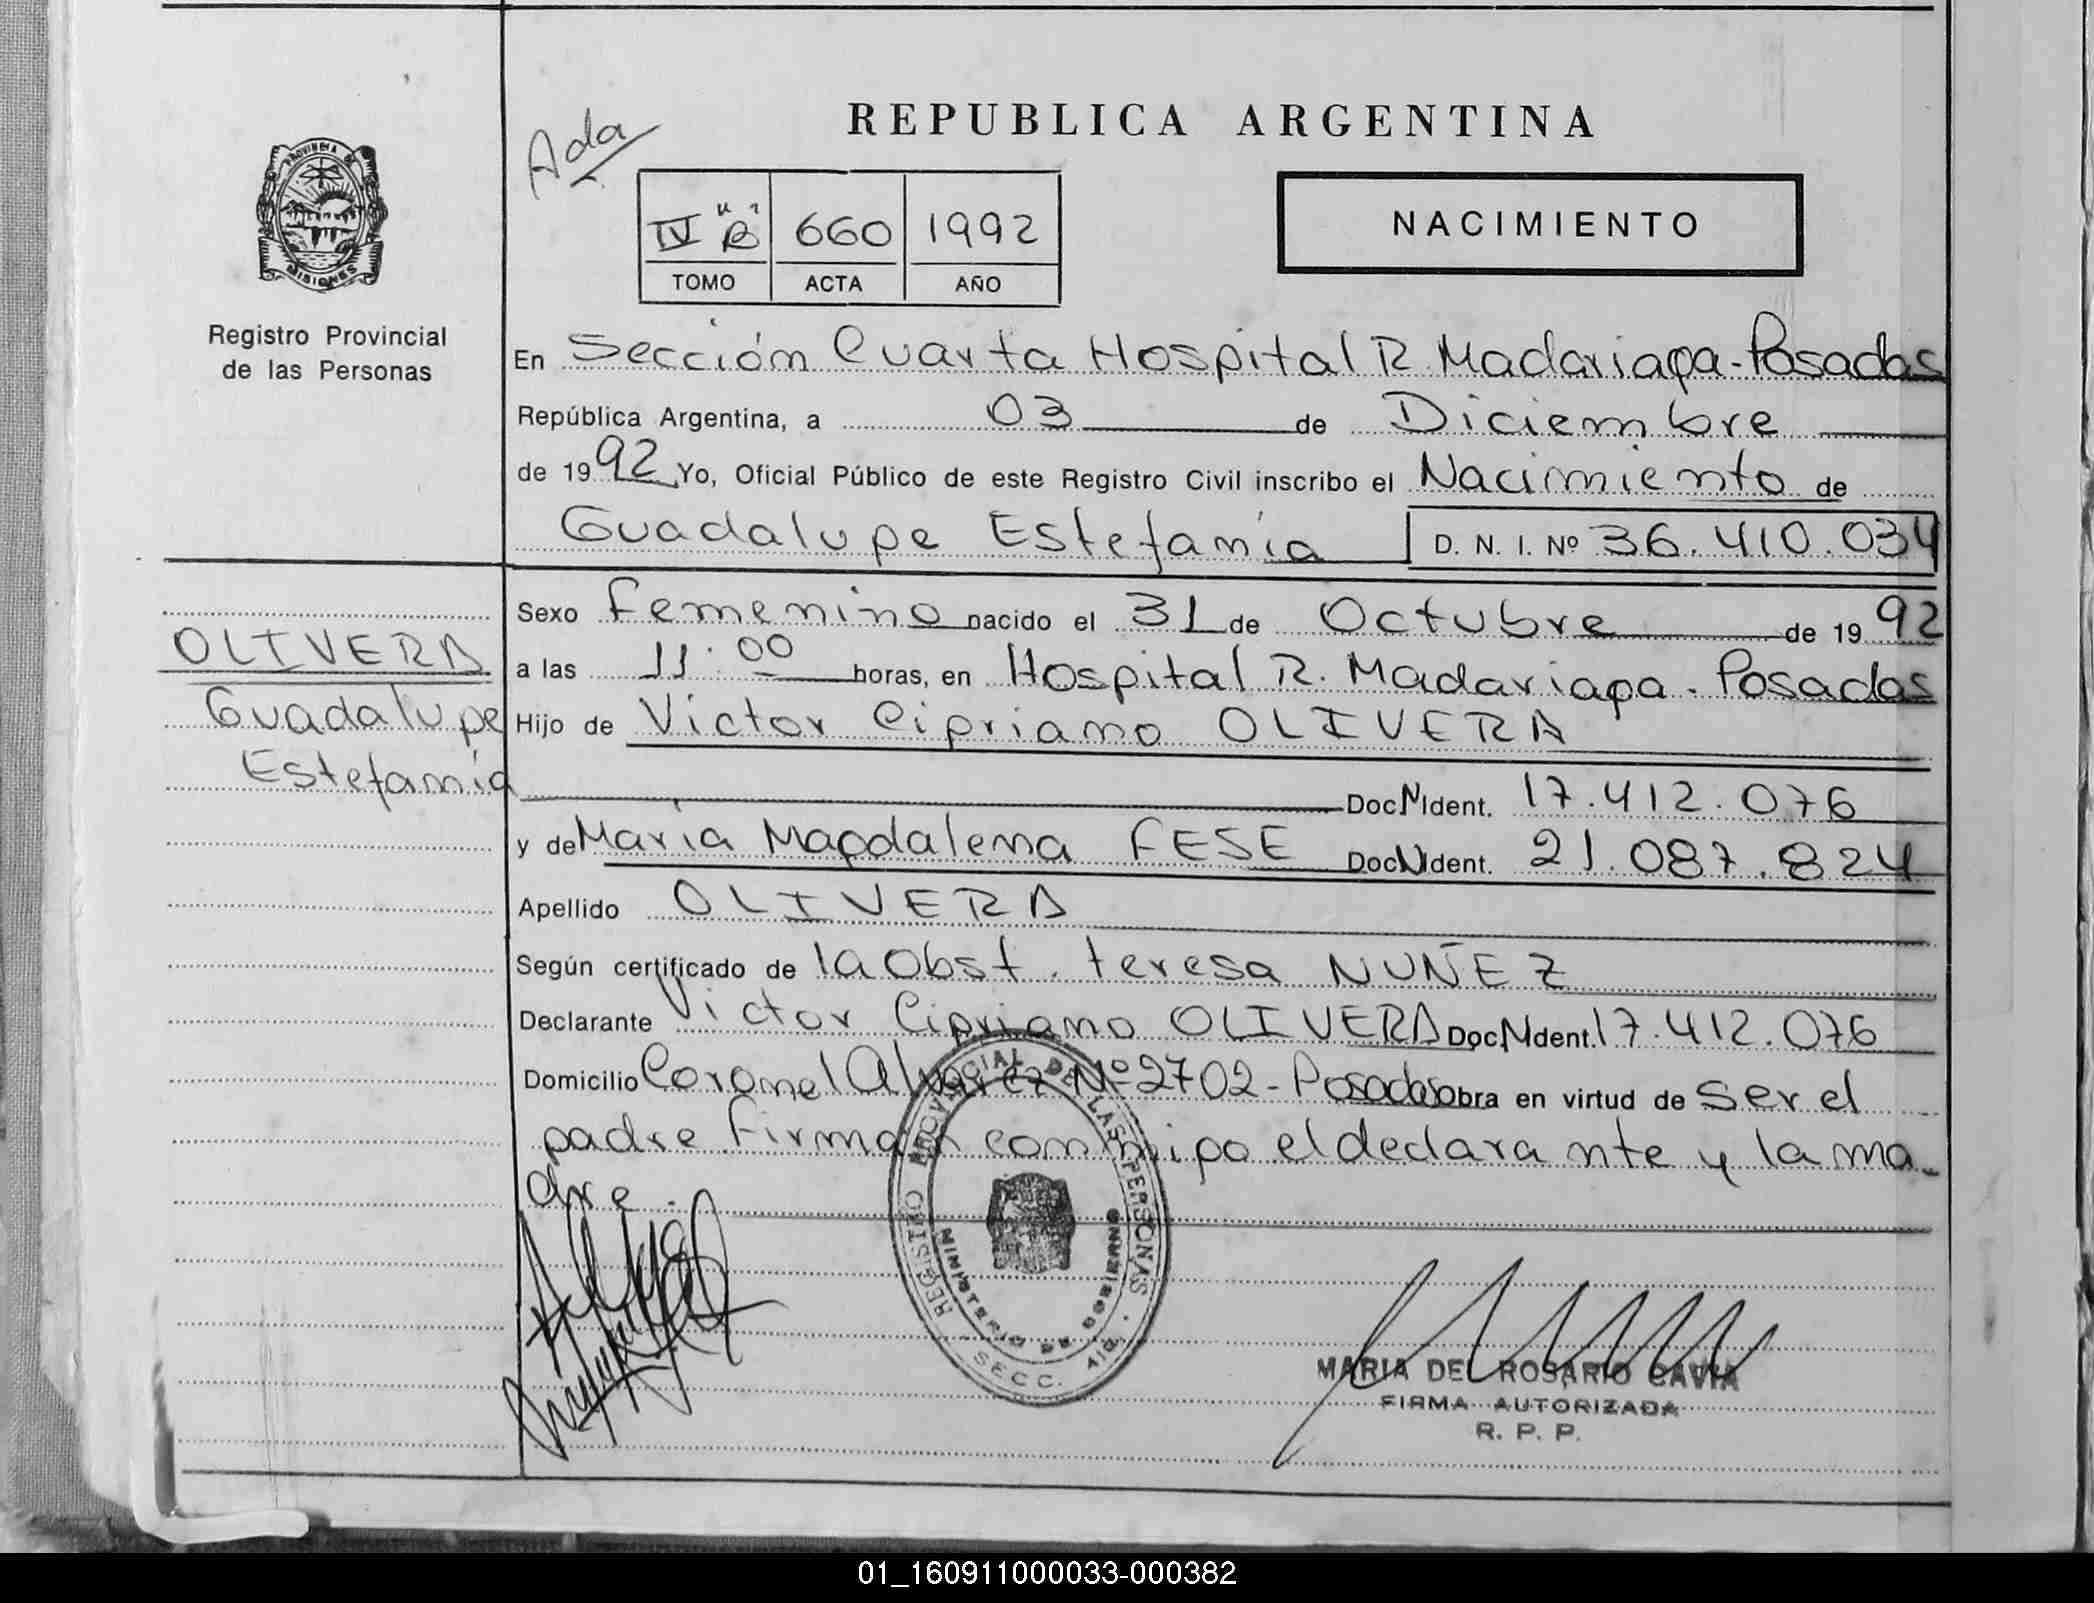 REPUBLICA ARGENTINA
Ada
PROVINCIA DE
MISIONES
IV "B" 660 1992
TOMO ACTA AÑO
NACIMIENTO
Registro Provincial
de las Personas
En Sección Cuarta Hospital R. Madariaga - Posadas
República Argentina, a 03 de Diciembre
de 1992 Yo, Oficial Público de este Registro Civil inscribo el Nacimiento de
Guadalupe Estefania D. N. I. Nº 36.410.034
Sexo Femenino nacido el 31 de Octubre de 1992
a las 11:00 horas, en Hospital R. Madariaga - Posadas
Hijo de Victor Cipriano OLIVERA
Doc N Ident. 17.412.076
y de Maria Magdalena FESE Doc N Ident. 21.087.824
Apellido OLIVERA
Según certificado de la Obst. teresa NUÑEZ
Declarante Victor Cipriano OLIVERA Doc N Ident. 17.412.076
Domicilio Coronel Alvarez Nº 2702 - Posadas obra en virtud de ser el
padre firman conmigo el declarante y la ma-
dre.
OLIVERA
Guadalupe
Estefania
REGISTRO PROVINCIAL DE LAS PERSONAS
MINISTERIO DE GOBIERNO
SECC. 4ta.
MARIA DEL ROSARIO CAVIA
FIRMA AUTORIZADA
R. P. P.
01_160911000033-000382